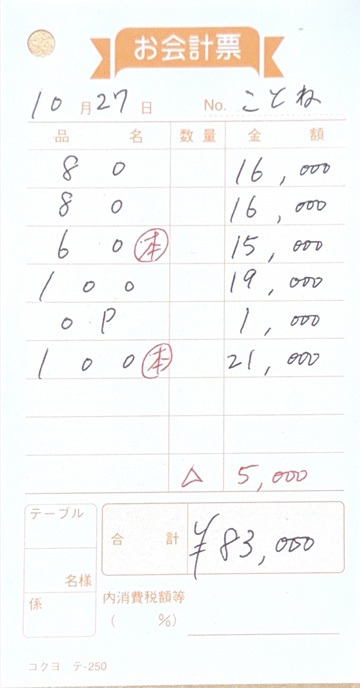 お会計票
10月27日 No. ことね
品名 数量 金額
80 16,000
80 16,000
60 本 15,000
100 19,000
OP 1,000
100 本 21,000
△ 5,000
テーブル
名様
合計 ¥83,000
係
内消費税額等
( %)
コクヨ テ-250